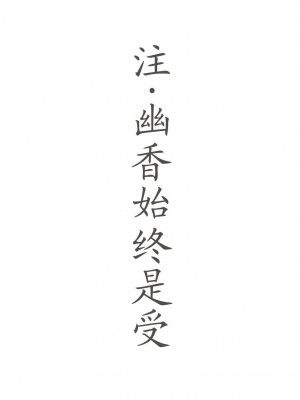 注·幽香始终是受